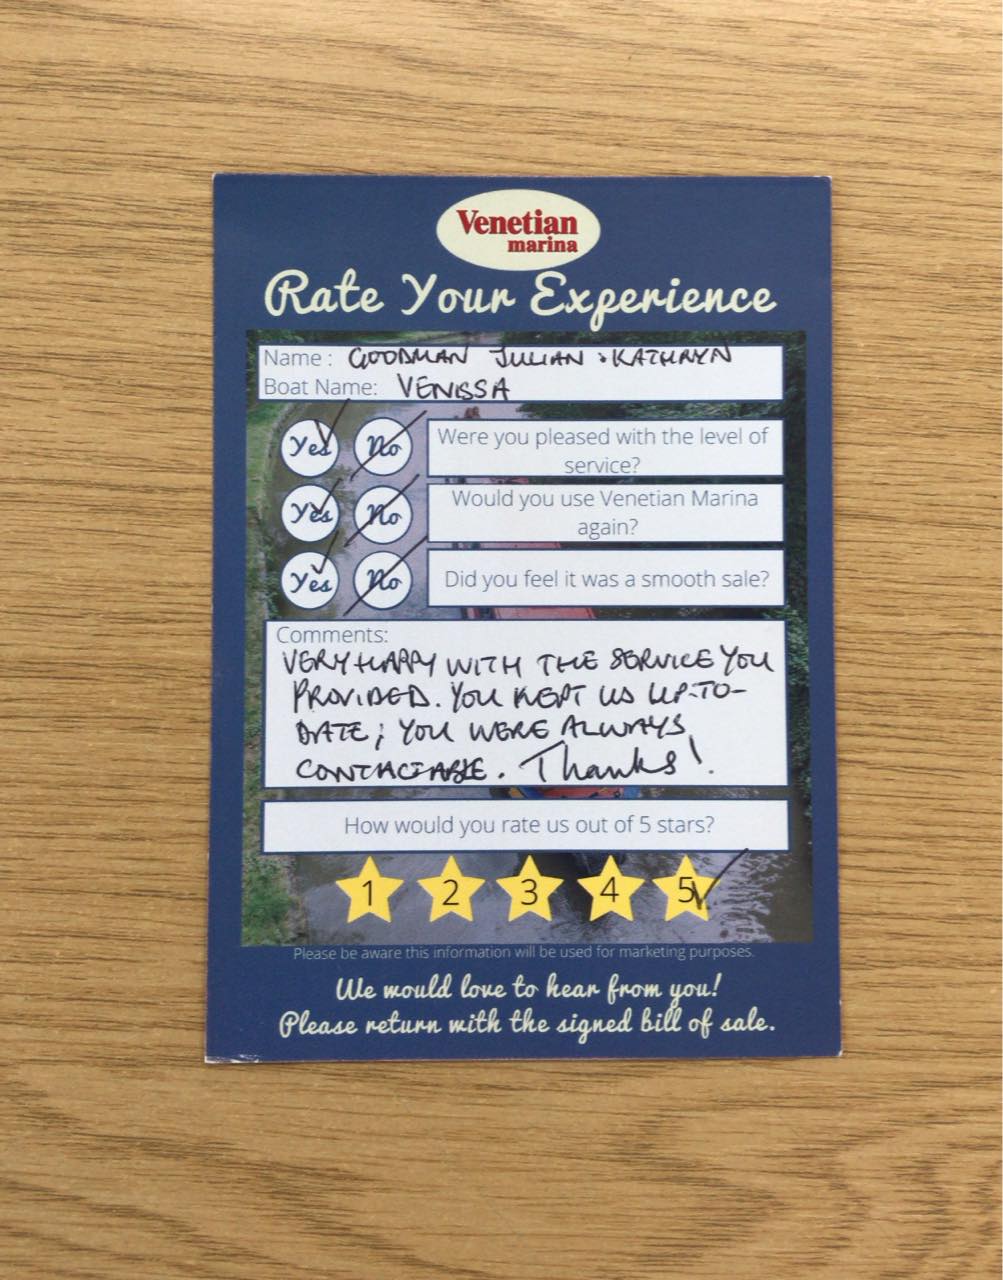 Venetian
marina
Rate Your Experience
Name : GOODMAN JULIAN & KATHRYN
Boat Name: VENISSA
Yes No Were you pleased with the level of
service?
Yes No Would you use Venetian Marina
again?
Yes No Did you feel it was a smooth sale?
Comments:
VERY HAPPY WITH THE SERVICE YOU
PROVIDED. YOU KEPT US UP-TO-
DATE; YOU WERE ALWAYS
CONTACTABLE. Thanks!
How would you rate us out of 5 stars?
1 2 3 4 5
Please be aware this information will be used for marketing purposes.
We would love to hear from you!
Please return with the signed bill of sale.